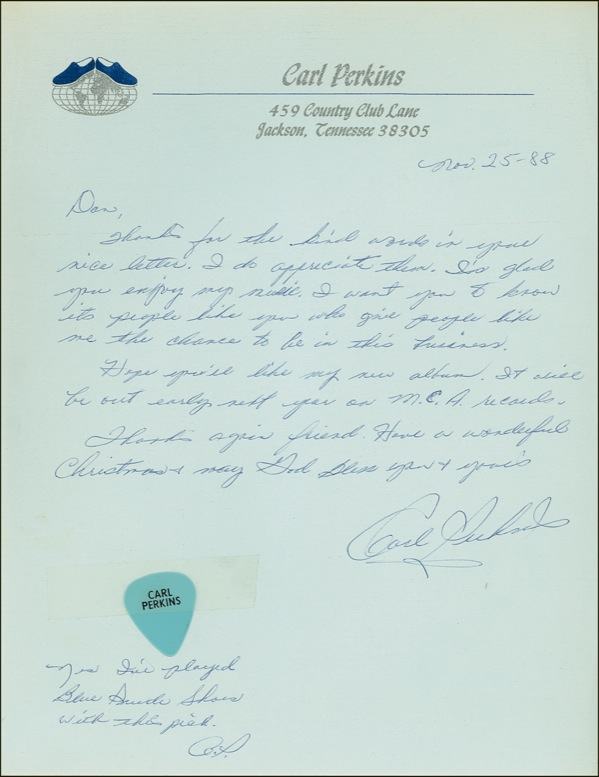 Carl Perkins
459 Country Club Lane
Jackson, Tennessee 38305
Nov. 25-88
Dan,
Thanks for the kind words in your
nice letter. I do appreciate them. I'm glad
you enjoy my music. I want you to know
its people like you who give people like
me the chance to be in this business.
Hope you'll like my new album. It will
be out early next year on M.C.A. records.
Thanks again friend. Have a wonderful
Christmas & may God bless you & your's
Carl Perkins
CARL
PERKINS
Yes I've played
Blue Suede Shoes
with this pick.
C.P.